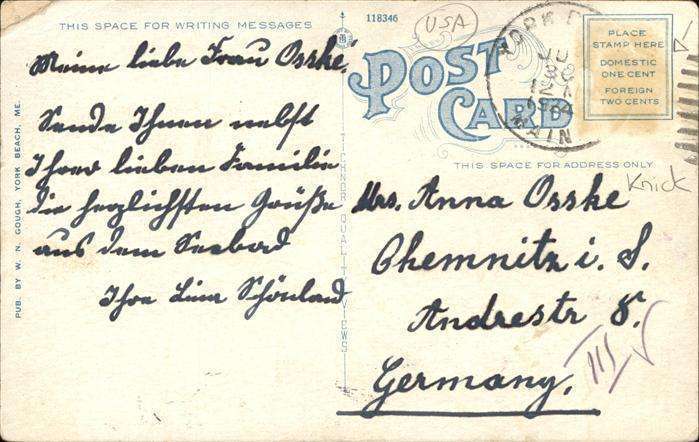 THIS SPACE FOR WRITING MESSAGES
118346
USA
POST
CARD
PLACE
STAMP HERE
DOMESTIC
ONE CENT
FOREIGN
TWO CENTS
YORK
12
MAIN
THIS SPACE FOR ADDRESS ONLY
Knick
Meine liebe Frau Osske!
Sende Ihnen nebst
Ihrer lieben Familie
die herzlichsten Grüße
aus dem Seebad
Ihre Lina Schönland
Mrs. Anna Osske
Chemnitz i. S.
Andrestr 8.
Germany.
III
PUB. BY W. N. GOUGH, YORK BEACH, ME.
TICHNOR QUALITY VIEWS